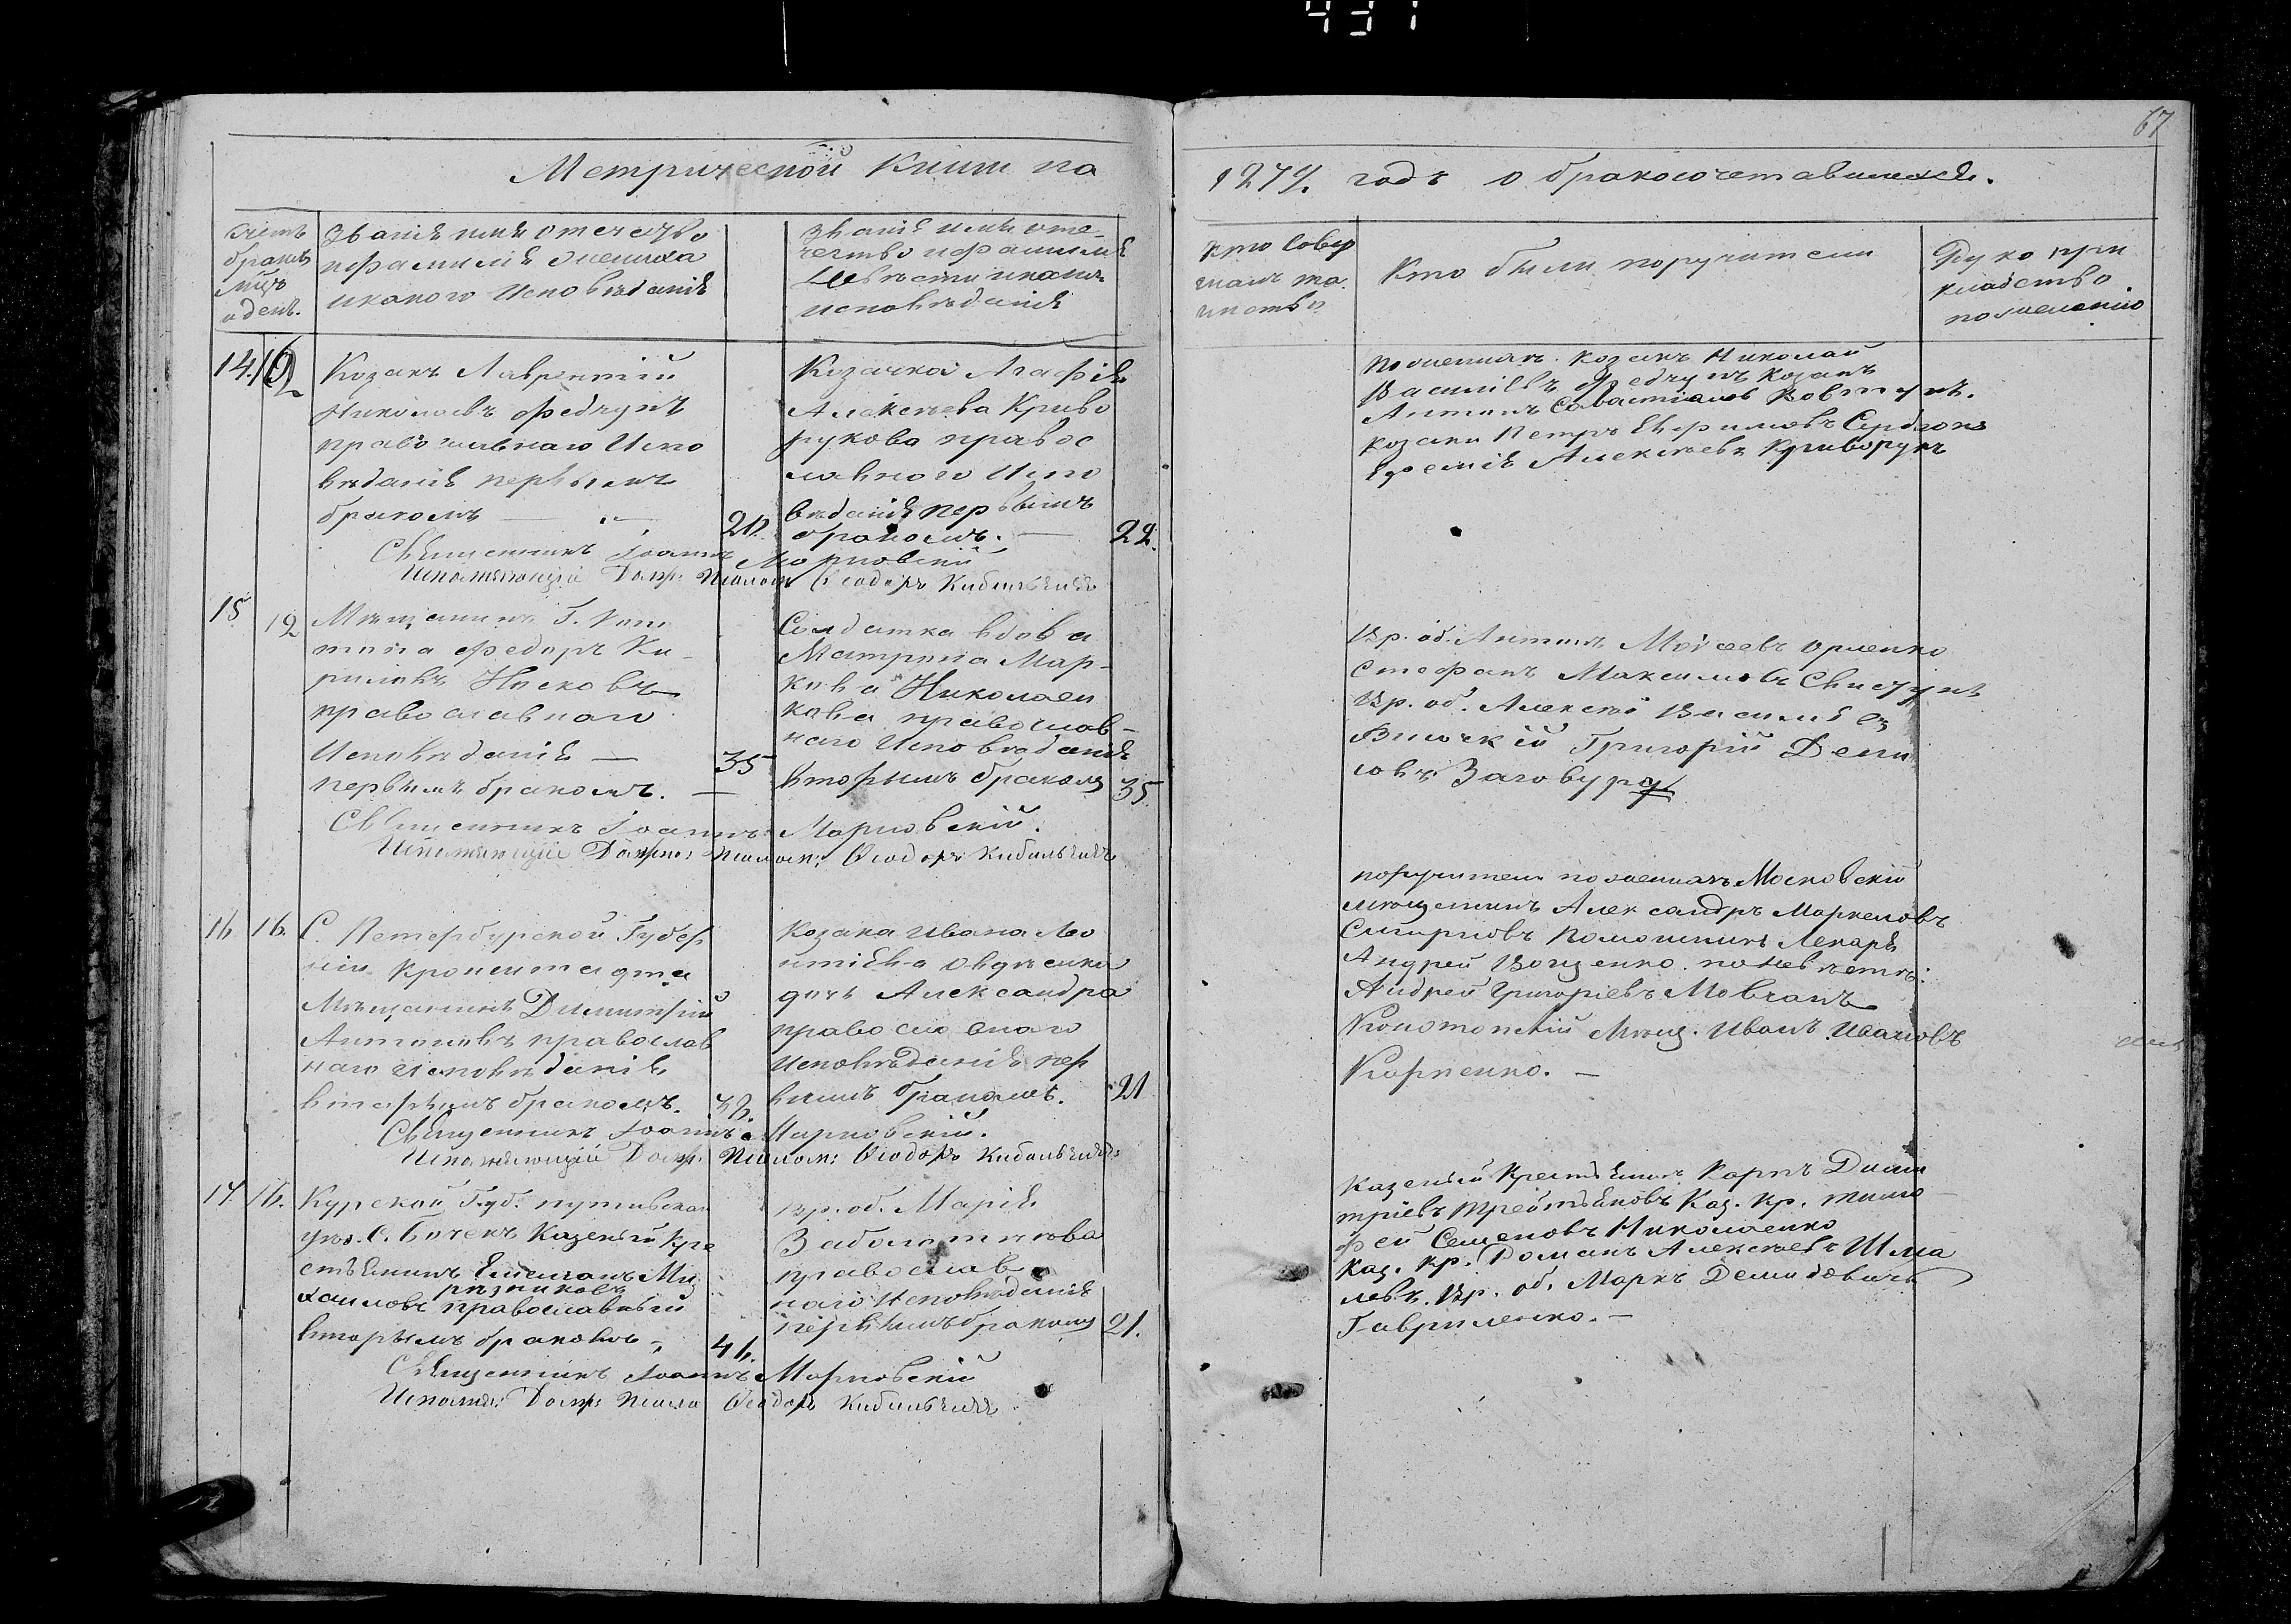 431
67
Метрической Книги на
1874. годъ о бракосочетавшихся.
Счетъ
браковъ
мцъ
и день.
Званіе имя отечество
и фамилія жениха
и какого Исповѣданія
Званіе имя оте-
чество и фамилія
Невѣсты и какого
исповѣданія
Кто совер
шалъ та
инство
Кто были поручители
Руко при
кладство
по желанію
14.
Козакъ Лаврентій
Николаевъ Федчунъ
православнаго Испо
вѣданія первымъ
бракомъ
Козачка Агафія
Алексѣева Криво
рукова правос
лавного Испо
вѣданія первымъ
бракомъ. — 22.
Священникъ Іоаннъ Марковскій
Исполняющій Долж: Псалом: Ѳеодоръ Кибальчичъ
по женихѣ козакъ Николай
Василіевъ Федчунъ козакъ
Антонъ Савастіановъ Ковтунъ.
козаки Петръ Евфимовъ Сердюкъ
Алексѣевъ Криворукъ
15 12
Мѣщанинъ Г. Коно
топа Федоръ Ки-
риловъ Носковъ
православнаго
Исповѣданія — 35
первымъ бракомъ. —
Солдатка вдова
Матрона Мар-
кова Николаен
кова православ-
наго Исповѣданія
вторымъ бракомъ 35.
Священникъ Іоаннъ Марковскій.
Исполняющій Должно: Псалом: Ѳеодоръ Кибальчичъ
Вр. об. Антонъ Моисеевъ Орленко
Стефанъ Максимовъ Свистунъ
Вр. об. Алексѣй Василіев
Григорій Дени
совъ
16. 16.
С. Петербурской Губер
ніи Кронштадта
Мѣщанинъ Димитрій
Антоновъ православ
наго Исповѣданія
вторымъ бракомъ.
Козака Ивана Лео
нтіева Овдѣенка
дочь Александра
православнаго
Исповѣданія пер
вымъ бракомъ. 21
Священникъ Іоаннъ Марковскій.
Исполняющій Долж. Псалом: Ѳеодоръ Кибальчичъ
поручители по женихѣ Московскій
мѣщанинъ Александръ Маркеловъ
Смирновъ Помошникъ Лекаря
Андрей Воценко. по невѣстѣ:
Андрей Григоріевъ Мовчанъ
Конотопскій Мѣщ. Иванъ Ивановъ
Карпенко. —
17 16.
Курской Губ. путивская
уѣз. С. Бочекъ Казеный Кре
стьянинъ Емеліанъ Ми
рѣзниковъ
хаиловъ православный
вторымъ бракомъ, 41.
вр. об. Марія
Заболотникова
православ
наго Исповѣданія
первымъ бракомъ 21.
Священникъ Іоаннъ Марковскій
Исполня: Долж: Псало Ѳеодоръ Кибальчичъ
Казеный Крестьянинъ Карпъ Дими
тріевъ Третьяковъ Каз. Кр. Тимо
фей Семеновъ Николаенко
Каз. кр. Романъ Алексѣевъ Шма
левъ. Вр. об. Маркъ Демидовичъ
Гавриленко. —